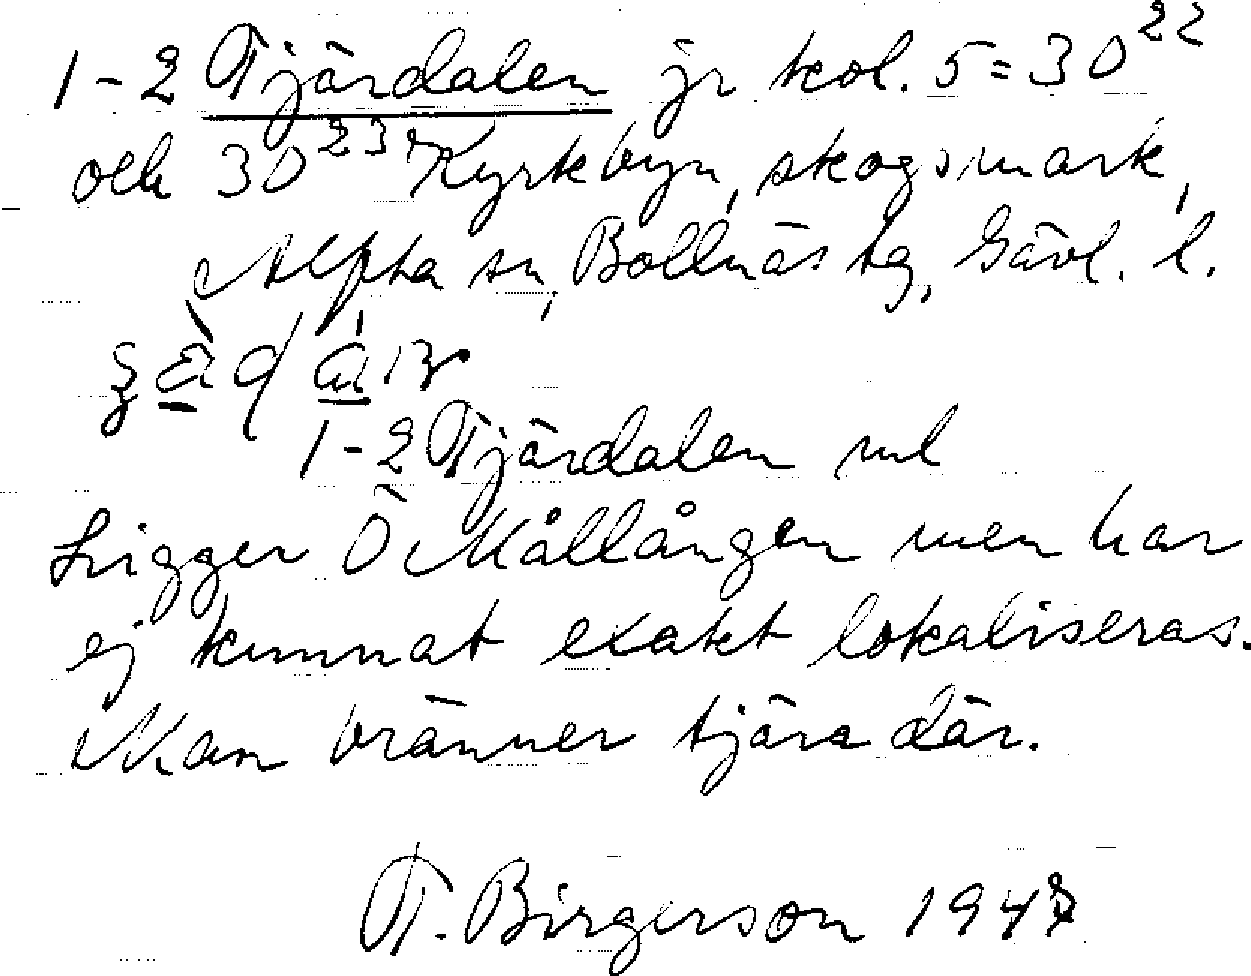 1-2 Tjärdalen jr kol. 5=30²²
och 30²³, Kyrkbyn, skogsmark,
Alfta sn, Bollnäs tg, Gävl. l.
1-2 Tjärdalen ml
Ligger Ö Mållången men har
ej kunnat exakt lokaliseras.
Man bränner tjära där.
T. Birgerson 1947